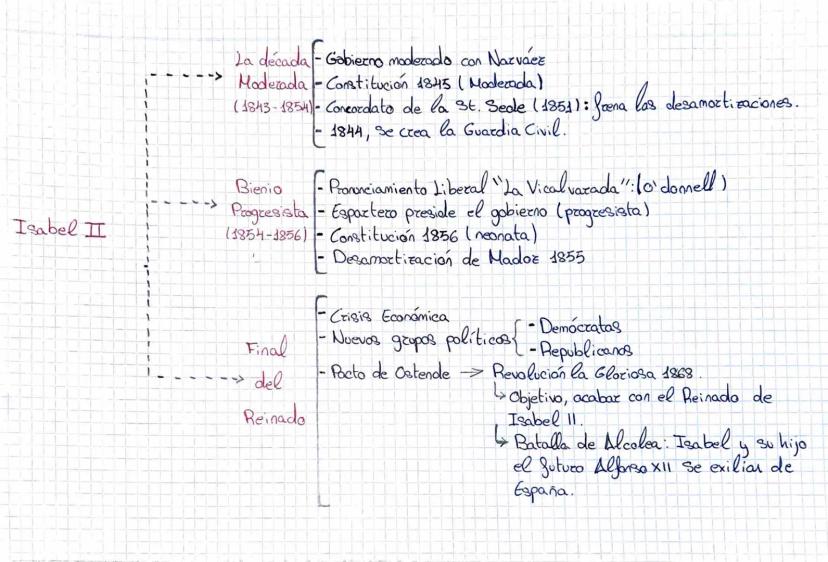 La década
Moderada
(1843-1854)
- Gobierno moderado con Narváez
- Constitución 1845 (Moderada)
- Concordato de la St. Sede (1851): frena las desamortizaciones.
- 1844, se crea la Guardia Civil.
Isabel II
Bienio
Progresista
(1854-1856)
- Pronunciamiento Liberal "La Vicalvarada": (O'donnell)
- Espartero preside el gobierno (progresista)
- Constitución 1856 (neonata)
- Desamortización de Madoz 1855
Final
del
Reinado
- Crisis Económica
- Nuevos grupos políticos
- Demócratas
- Republicanos
- Pacto de Ostende → Revolución la Gloriosa 1868.
↳ Objetivo, acabar con el Reinado de
Isabel II.
↳ Batalla de Alcolea: Isabel y su hijo
el futuro Alfonso XII se exilian de
España.